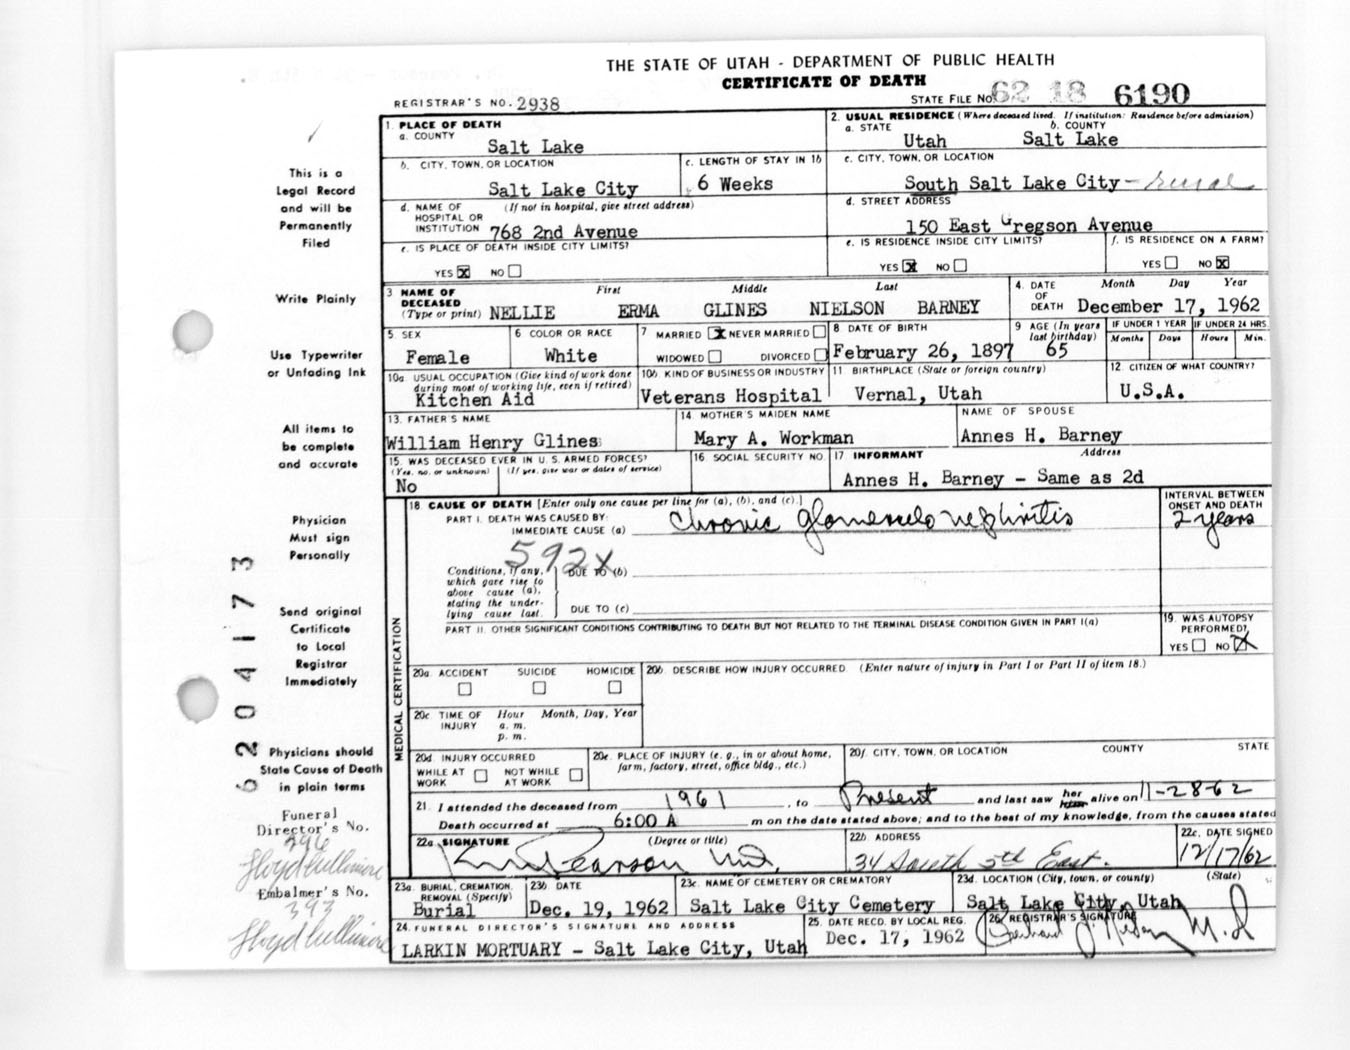 THE STATE OF UTAH - DEPARTMENT OF PUBLIC HEALTH
CERTIFICATE OF DEATH
REGISTRAR'S NO. 2938
STATE FILE NO. 62 18 6190
1. PLACE OF DEATH
a. COUNTY
Salt Lake
2. USUAL RESIDENCE (Where deceased lived. If institution: Residence before admission)
a. STATE
b. COUNTY
Utah Salt Lake
b. CITY, TOWN, OR LOCATION
Salt Lake City
c. LENGTH OF STAY IN 1b
6 Weeks
c. CITY, TOWN, OR LOCATION
South Salt Lake City - rural
d. NAME OF HOSPITAL OR INSTITUTION (If not in hospital, give street address)
768 2nd Avenue
d. STREET ADDRESS
150 East Gregson Avenue
e. IS PLACE OF DEATH INSIDE CITY LIMITS?
YES X NO
e. IS RESIDENCE INSIDE CITY LIMITS?
YES X NO
f. IS RESIDENCE ON A FARM?
YES NO X
3 NAME OF DECEASED (Type or print)
First Middle Last
NELLIE ERMA GLINES NIELSON BARNEY
4. DATE OF DEATH
Month Day Year
December 17, 1962
5. SEX
Female
6 COLOR OR RACE
White
7 MARRIED X NEVER MARRIED
WIDOWED DIVORCED
8 DATE OF BIRTH
February 26, 1897
9 AGE (In years last birthday)
65
IF UNDER 1 YEAR
Months Days
IF UNDER 24 HRS.
Hours Min.
10a. USUAL OCCUPATION (Give kind of work done during most of working life, even if retired)
Kitchen Aid
10b. KIND OF BUSINESS OR INDUSTRY
Veterans Hospital
11 BIRTHPLACE (State or foreign country)
Vernal, Utah
12 CITIZEN OF WHAT COUNTRY?
U.S.A.
13. FATHER'S NAME
William Henry Glines
14. MOTHER'S MAIDEN NAME
Mary A. Workman
NAME OF SPOUSE
Annes H. Barney
15. WAS DECEASED EVER IN U.S. ARMED FORCES?
(Yes, no. or unknown) (If yes, give war or dates of service)
No
16. SOCIAL SECURITY NO.
17 INFORMANT Address
Annes H. Barney - Same as 2d
18 CAUSE OF DEATH [Enter only one cause per line for (a), (b), and (c).]
PART I. DEATH WAS CAUSED BY:
IMMEDIATE CAUSE (a) Chronic glomerulo nephritis
INTERVAL BETWEEN ONSET AND DEATH
2 years
592X
Conditions, if any, which gave rise to above cause (a), stating the underlying cause last.
DUE TO (b)
DUE TO (c)
PART II. OTHER SIGNIFICANT CONDITIONS CONTRIBUTING TO DEATH BUT NOT RELATED TO THE TERMINAL DISEASE CONDITION GIVEN IN PART I(a)
19. WAS AUTOPSY PERFORMED?
YES NO X
MEDICAL CERTIFICATION
20a. ACCIDENT SUICIDE HOMICIDE
20b. DESCRIBE HOW INJURY OCCURRED. (Enter nature of injury in Part I or Part II of item 18.)
20c. TIME OF INJURY
Hour Month, Day, Year
a. m.
p. m.
20d. INJURY OCCURRED
WHILE AT WORK NOT WHILE AT WORK
20e. PLACE OF INJURY (e. g., in or about home, farm, factory, street, office bldg., etc.)
20f. CITY, TOWN, OR LOCATION COUNTY STATE
21. I attended the deceased from 1961, to Present and last saw her alive on 11-28-62
Death occurred at 6:00 A m on the date stated above; and to the best of my knowledge, from the causes stated
22a. SIGNATURE (Degree or title)
Pearson M.D.
22b. ADDRESS
34 South 5th East.
22c. DATE SIGNED
12/17/62
23a. BURIAL, CREMATION, REMOVAL (Specify)
Burial
23b. DATE
Dec. 19, 1962
23c. NAME OF CEMETERY OR CREMATORY
Salt Lake City Cemetery
23d. LOCATION (City, town, or county) (State)
Salt Lake City, Utah
24. FUNERAL DIRECTOR'S SIGNATURE AND ADDRESS
LARKIN MORTUARY - Salt Lake City, Utah
25. DATE RECD. BY LOCAL REG.
Dec. 17, 1962
26 REGISTRAR'S SIGNATURE
M.D
This is a
Legal Record
and will be
Permanently
Filed
Write Plainly
Use Typewriter
or Unfading Ink
All items to
be complete
and accurate
Physician
Must sign
Personally
Send original
Certificate
to Local
Registrar
Immediately
Physicians should
State Cause of Death
in plain terms
Funeral
Director's No.
396
Floyd Cullimore
Embalmer's No.
393
Floyd Cullimore
6204173